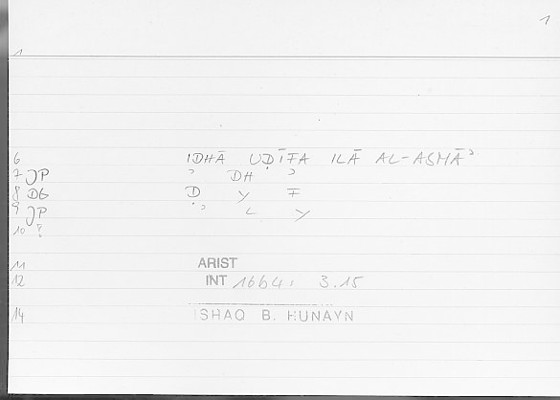 1
1
6 IDHĀ UḌĪFA ILĀ AL-ASMĀʾ
7 JP ʾ DH ʾ
8 DG Ḍ Y F
9 JP ʾ L Y
10 ?
11 ARIST
12 INT 16b4, 3.15
14 ISHAQ B. HUNAYN